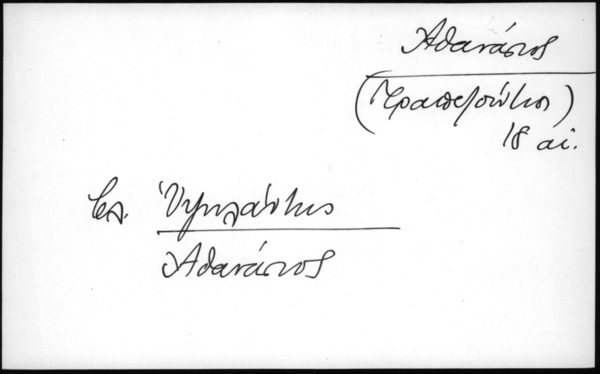 Ἀθανάσιος
(Τραπεζούντιος)
18 αἰ.
Βλ. Ὑψηλάντης
Ἀθανάσιος